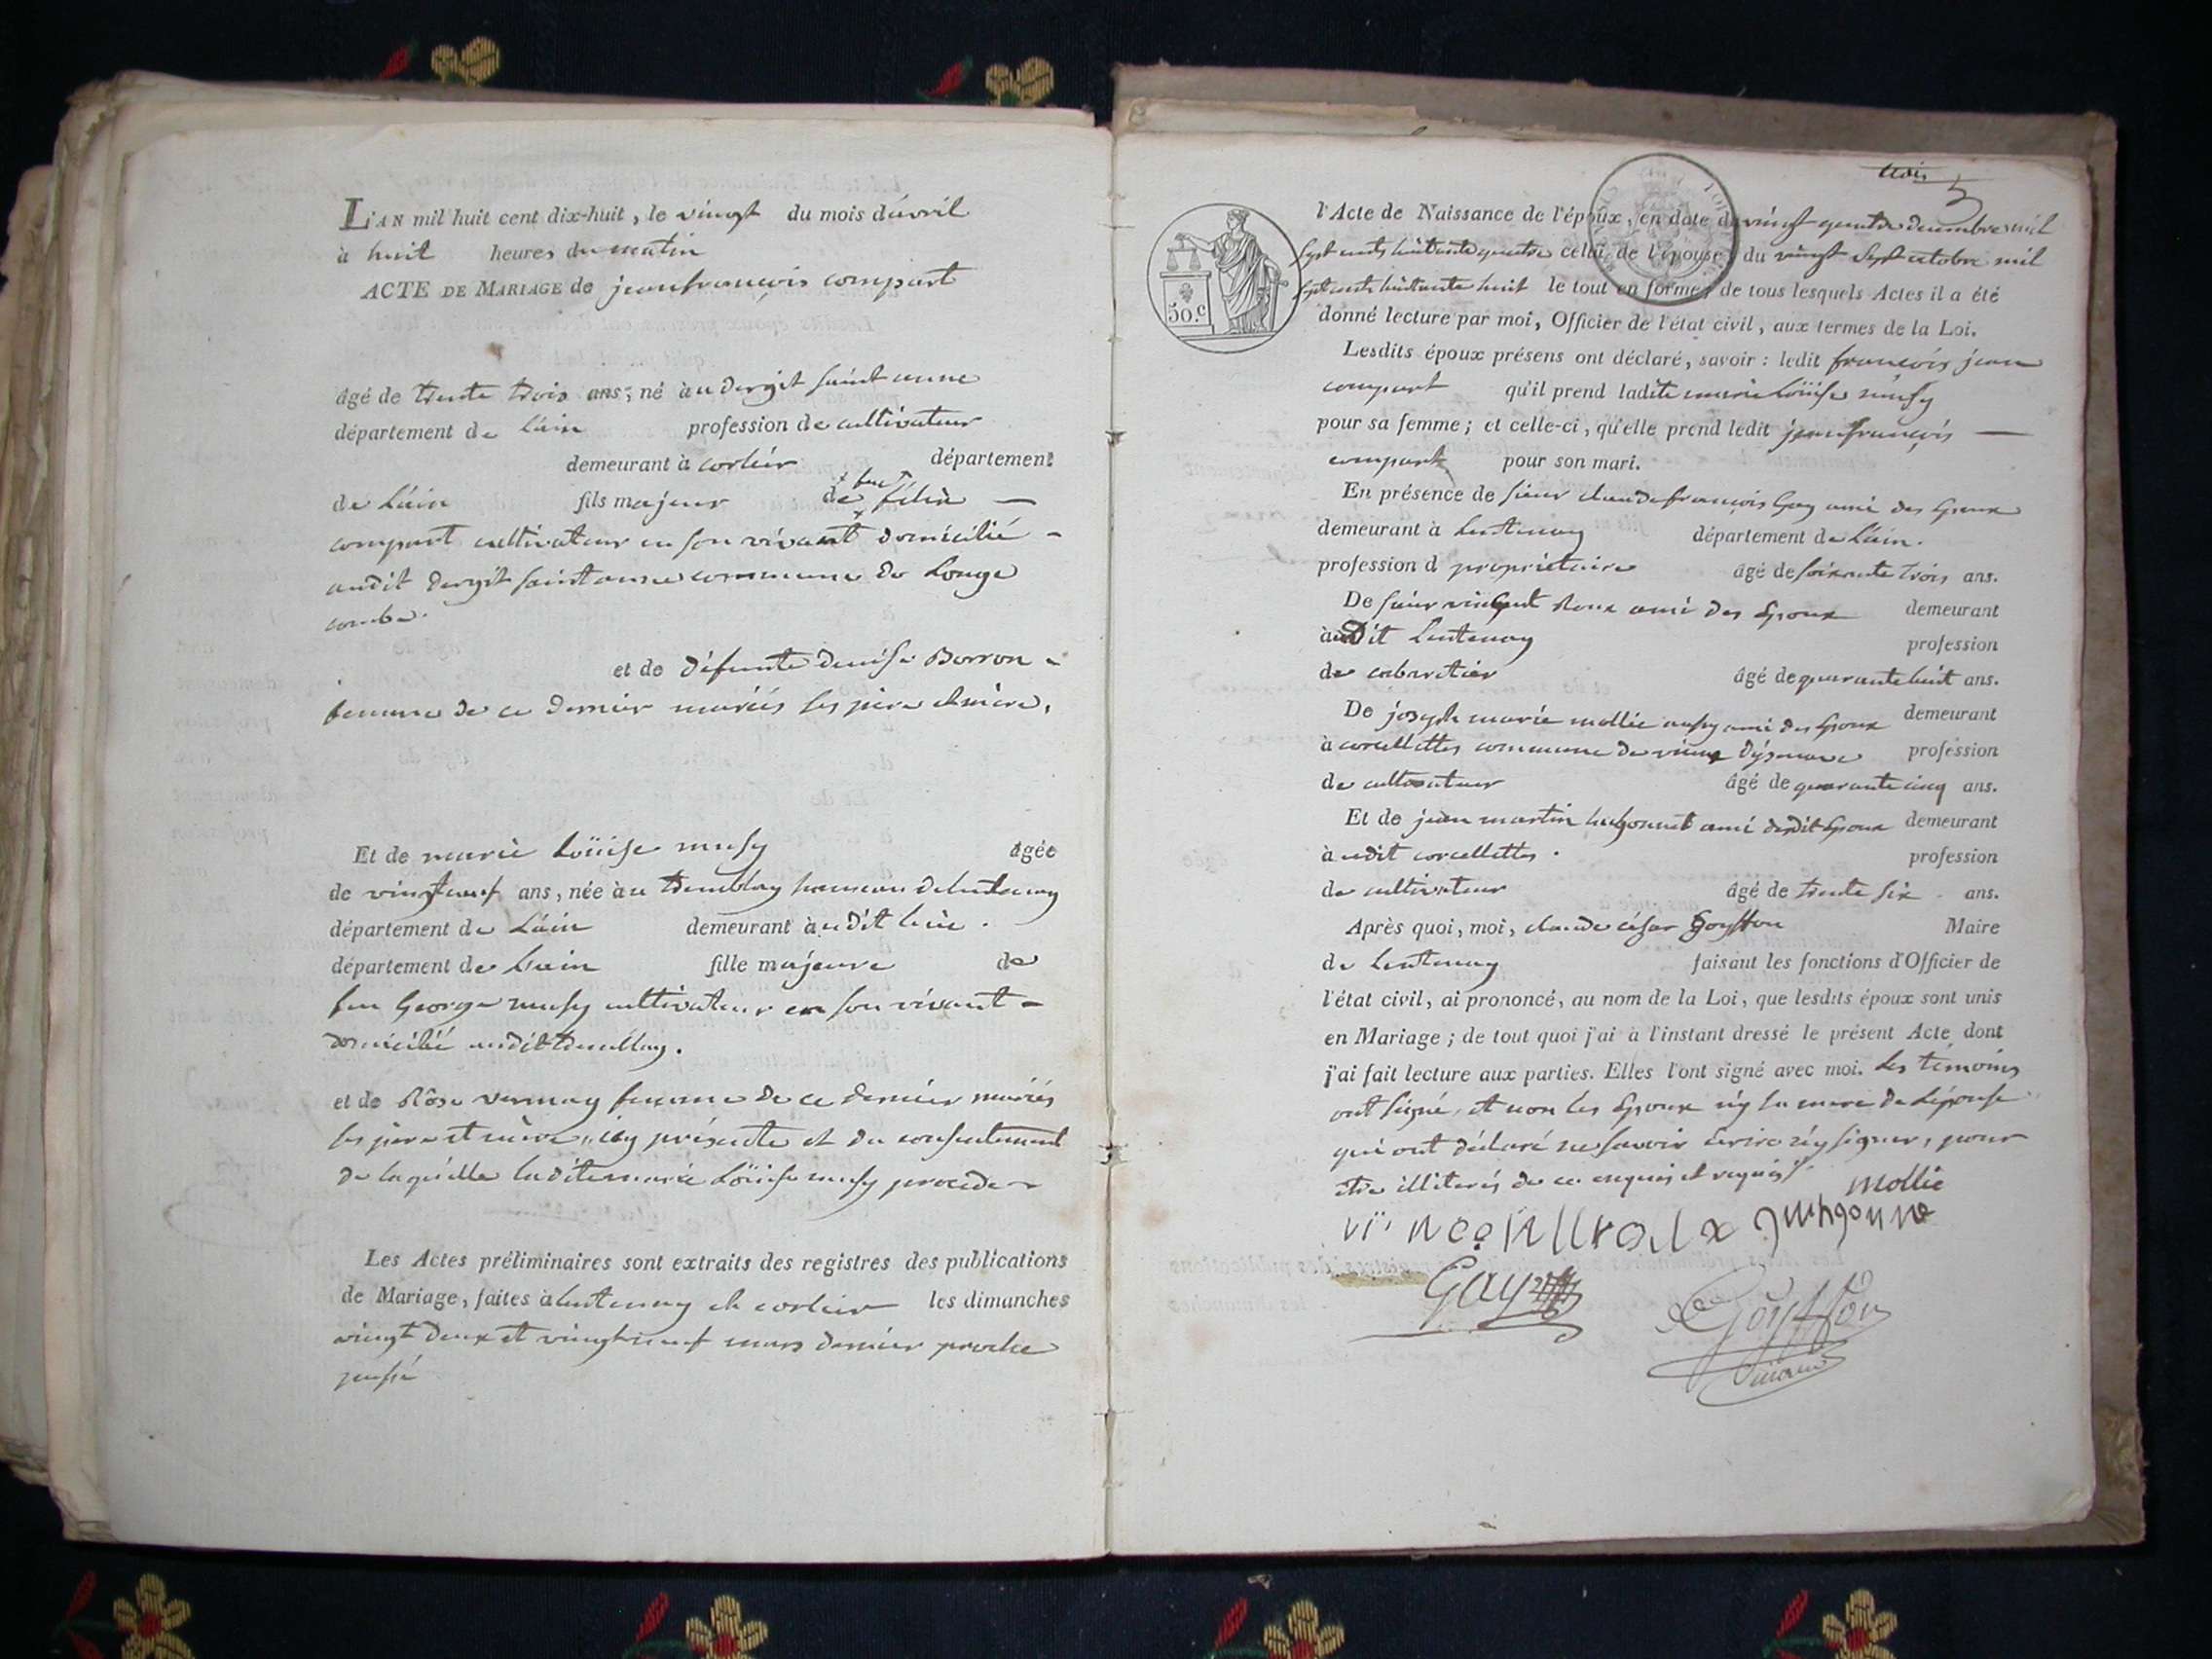 L'AN mil huit cent dix-huit, le vingt du mois d'avril
à huit heures du matin
ACTE DE MARIAGE de jeanfrançois compart
âgé de trente trois ans, né à au dergit saint anne
département de Lain profession de cultivateur
demeurant à corlier département
de Lain fils majeur de feu félix —
compart cultivateur en son vivant domicilié -
audit dergit saint anne commune de Longe
combe.
et de défunte denise Borron -
femme de ce dernier mariés ses père et mère,
Et de marie Loüise musy âgée
de vingtneuf ans, née à au tremblay hameau de lentenay
département de Lain demeurant à udit lieu.
département de Lain fille majeure de
feu George musy cultivateur en son vivant -
domicilié audit tremblay.
et de Rôse vernay femme de ce dernier mariés
ses père et mère, icy présente et du consentement
de laquelle ladite marie Loüise musy procède
Les Actes préliminaires sont extraits des registres des publications
de Mariage, faites à lentenay et corlier les dimanches
vingt deux et vingtneuf mars dernier proche
passé
trois
50.c
l'Acte de Naissance de l'époux, en date du vingt quatre decembre mil
sept cents huitante quatre celui de l'épouse, du vingt sept octobre mil
sept cents huitante huit le tout en forme; de tous lesquels Actes il a été
donné lecture par moi, Officier de l'état civil, aux termes de la Loi.
Lesdits époux présens ont déclaré, savoir : ledit francois jean
compart qu'il prend ladite marie Loüise musy
pour sa femme; et celle-ci, qu'elle prend ledit jeanfrançois —
compart pour son mari.
En présence de sieur claudefrançois Gay ami des Epoux
demeurant à Lentenay département de Lain.
profession d propriétaire âgé de soixante trois ans.
De sieur vincent Roux ami des Epoux demeurant
à audit Lentenay profession
de cabaretier âgé de quarantehuit ans.
De joseph marie mollie aussy ami des Epoux demeurant
à corcellettes commune de vieux d'yzenave profession
de cultivateur âgé de quarante cinq ans.
Et de jean martin hugonnet ami desdit Epoux demeurant
à udit corcellettes. profession
de cultivateur âgé de trente six ans.
Après quoi, moi, claude césar Goyffon Maire
de Lentenay faisant les fonctions d'Officier de
l'état civil, ai prononcé, au nom de la Loi, que lesdits époux sont unis
en Mariage; de tout quoi j'ai à l'instant dressé le présent Acte dont
j'ai fait lecture aux parties. Elles l'ont signé avec moi. Les témoins
ont signé, et non les Epoux n'y la mere de Lépouse
qui ont déclaré ne savoir Ecrire n'y signer, pour
etre illiterés de ce enquis et requis
mollie
Gay
Goyffon
maire